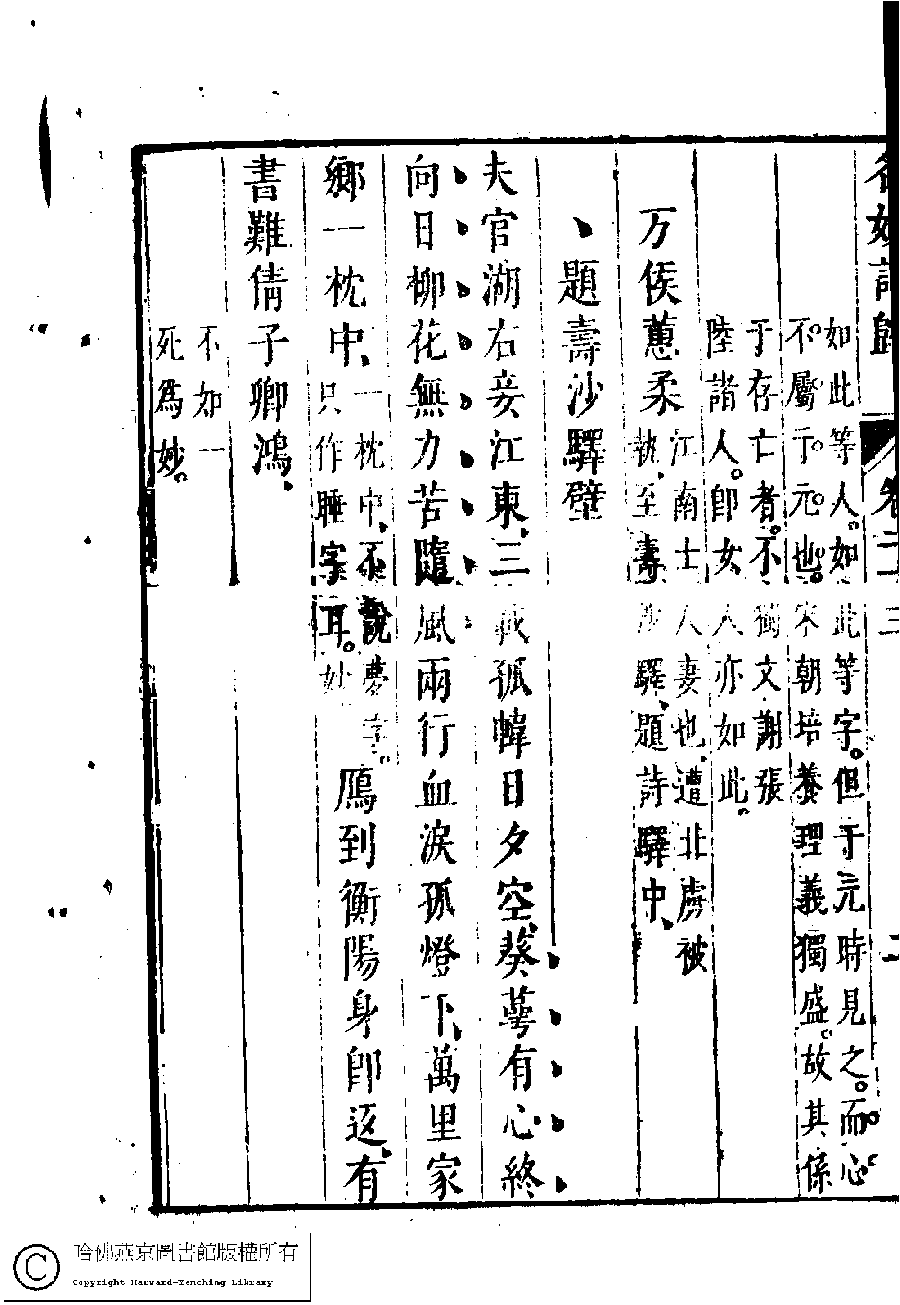 名媛詩歸 卷二三 二
如此等人。如此等字。但于元時見之。而心
不屬于元也。宋朝培養理義獨盛。故其係
于存亡者。不獨文謝張
陸諸人。卽女人亦如此。
万俟蕙柔
江南士人妻也、遭北虜被
執、至壽沙驛、題詩驛中、
題壽沙驛壁
夫官湖右妾江東、三載孤幃日夕空、葵萼有心終
向日柳花無力苦隨風兩行血淚孤燈下、萬里家
鄉一枕中、
一枕中、不說夢字。
只作睡字耳。妙
鴈到衡陽身卽返、有
書難倩子卿鴻、
不如一
死爲妙。
哈佛燕京圖書館版權所有
Copyright Harvard-Yenching Library